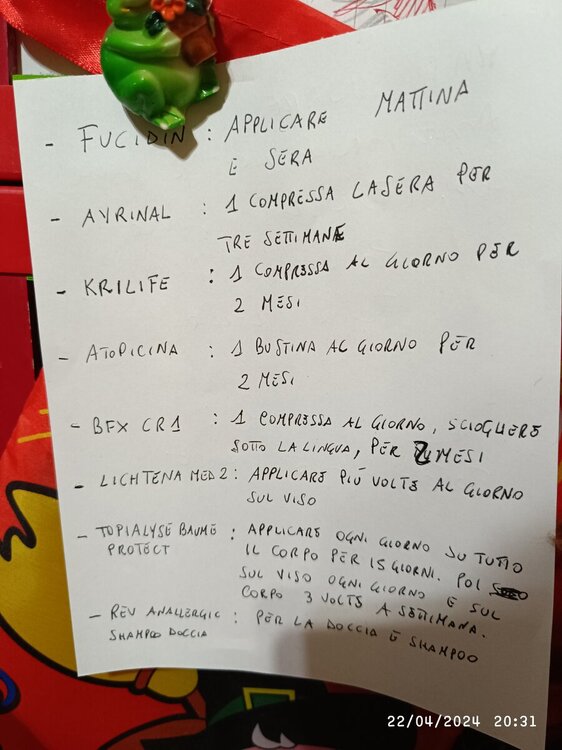 - FUCIDIN : APPLICARE MATTINA
E SERA
- AYRINAL : 1 COMPRESSA LA SERA PER
TRE SETTIMANE
- KRILIFE : 1 COMPRESSA AL GIORNO PER
2 MESI
- ATOPICINA : 1 BUSTINA AL GIORNO PER
2 MESI
- BFX CR1 : 1 COMPRESSA AL GIORNO, SCIOGLIERE
SOTTO LA LINGUA, PER 2 MESI
- LICHTENA MED 2 : APPLICARE PIÚ VOLTE AL GIORNO
SUL VISO
- TOPIALYSE BAUME : APPLICARE OGNI GIORNO SU TUTTO
PROTECT IL CORPO PER 15 GIORNI. POI
SUL VISO OGNI GIORNO E SUL
CORPO 3 VOLTE A SETTIMANA.
- REV ANALLERGIC : PER LA DOCCIA E SHAMPOO
SHAMPOO DOCCIA
22/04/2024 20:31